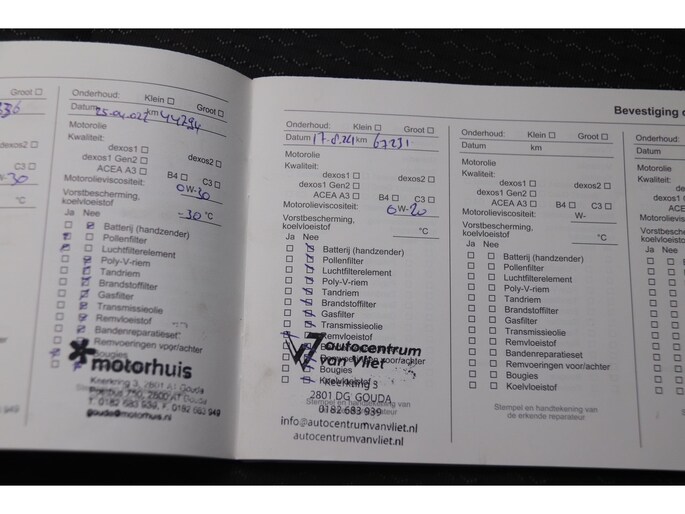 Onderhoud: Klein Groot
Datum 25-04-022 km 44294
Motorolie
Kwaliteit:
dexos1 dexos2
dexos1 Gen2
ACEA A3 B4 C3
Motorolieviscositeit: 0W-30
Vorstbescherming,
koelvloeistof -30 °C
Ja Nee
Batterij (handzender)
Pollenfilter
Luchtfilterelement
Poly-V-riem
Tandriem
Brandstoffilter
Gasfilter
Transmissieolie
Remvloeistof
Bandenreparatieset
Remvoeringen voor/achter
Bougies
motorhuis
Keerkring 3, 2801 Gouda
T. 0182 683 939, F. 0182 683
gouda@motorhuis.nl
Bevestiging
Onderhoud: Klein Groot
Datum 17-8-241 km 67231
Motorolie
Kwaliteit:
dexos1 dexos2
dexos1 Gen2
ACEA A3 B4 C3
Motorolieviscositeit: 0W-20
Vorstbescherming,
koelvloeistof °C
Ja Nee
Batterij (handzender)
Pollenfilter
Luchtfilterelement
Poly-V-riem
Tandriem
Brandstoffilter
Gasfilter
Transmissieolie
Remvloeistof
autocentrum
van Vliet
Bougies
Koelvloeistof
Keerkring 3
2801 DG GOUDA
0182 683 939
info@autocentrumvanvliet.nl
autocentrumvanvliet.nl
Onderhoud: Klein Groot
Datum km
Motorolie
Kwaliteit:
dexos1 dexos2
dexos1 Gen2
ACEA A3 B4 C3
Motorolieviscositeit: W-
Vorstbescherming,
koelvloeistof °C
Ja Nee
Batterij (handzender)
Pollenfilter
Luchtfilterelement
Poly-V-riem
Tandriem
Brandstoffilter
Gasfilter
Transmissieolie
Remvloeistof
Bandenreparatieset
Remvoeringen voor/achter
Bougies
Koelvloeistof
Stempel en handtekening van
de erkende reparateur
Onderhoud:
Datum
Motorolie
Kwaliteit:
Ja Nee